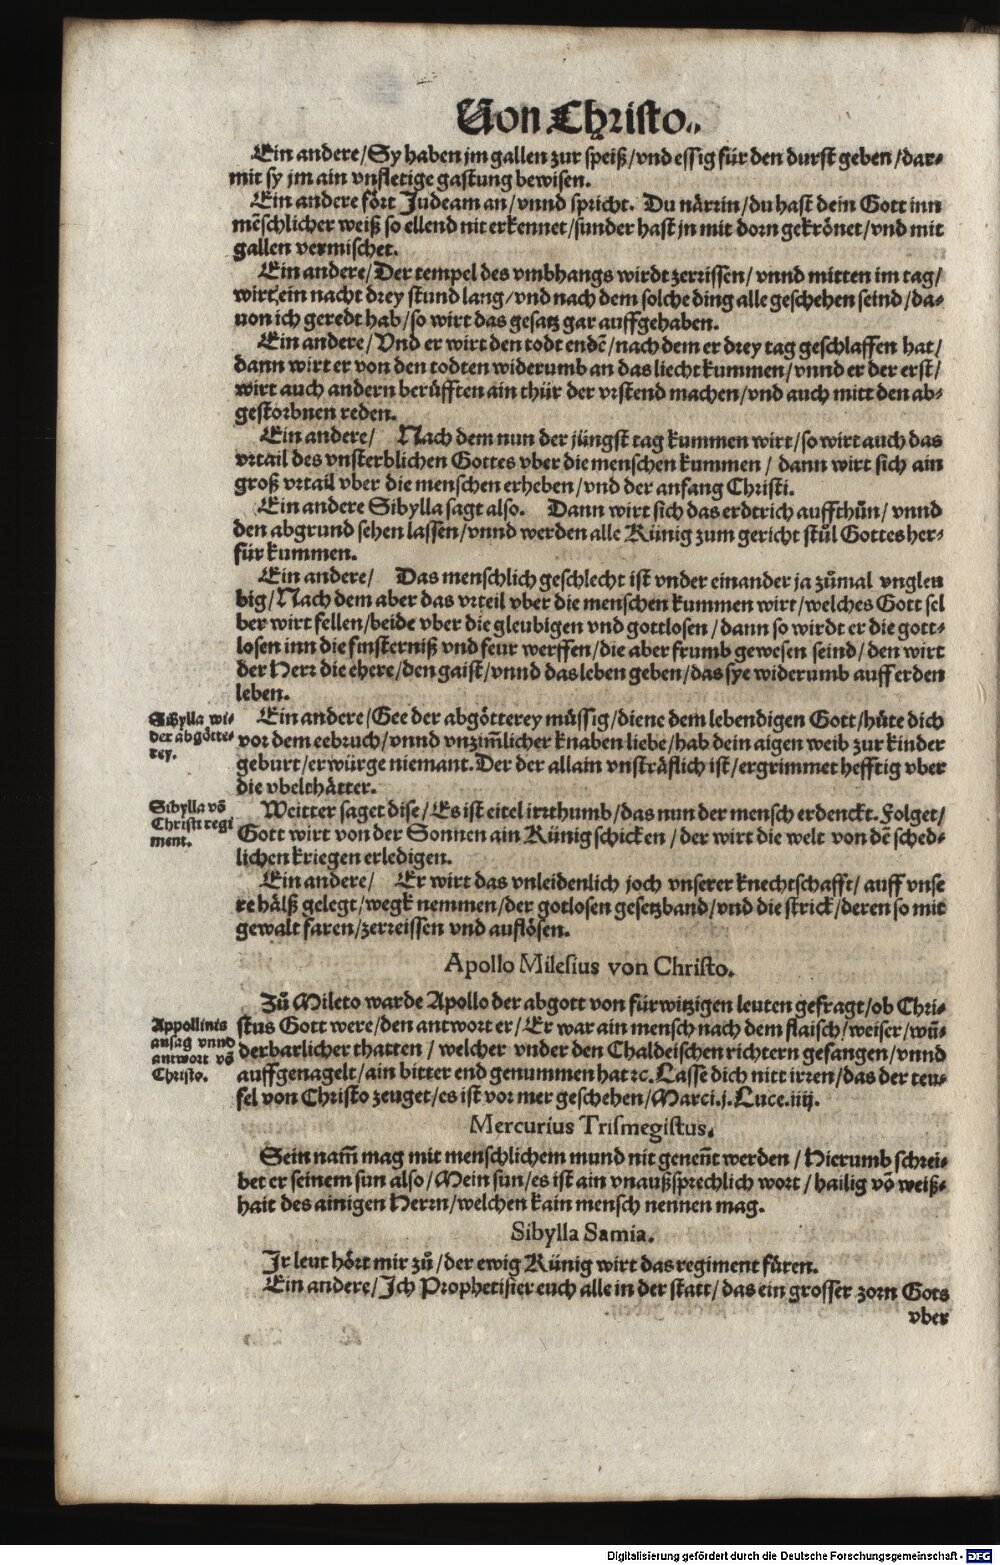 Von Christo.
Ein andere/Sy haben jm gallen zur speiß/vnd essig für den durst geben/dar-
mit sy jm ain vnfletige gastung bewisen.
Ein andere fört Judeam an/vnnd spricht. Du närrin/du hast dein Gott inn
mēschlicher weiß so ellend nit erkennet/sunder hast jn mit dorn gekrönet/vnd mit
gallen vermischet.
Ein andere/Der tempel des vmbhangs wirdt zerrissen/vnnd mitten im tag/
wirt ein nacht drey stund lang/vnd nach dem solche ding alle geschehen seind/da-
uon ich geredt hab/so wirt das gesatz gar auffgehaben.
Ein andere/Vnd er wirt den todt endē/nach dem er drey tag geschlaffen hat/
dann wirt er von den todten widerumb an das liecht kummen/vnnd er der erst/
wirt auch andern berüfften ain thür der vrstend machen/vnd auch mitt den ab-
gestorbnen reden.
Ein andere/ Nach dem nun der jüngst tag kummen wirt/so wirt auch das
vrtail des vnsterblichen Gottes vber die menschen kummen/ dann wirt sich ain
groß vrtail vber die menschen erheben/vnd der anfang Christi.
Ein andere Sibylla sagt also. Dann wirt sich das erdtrich auffthůn/vnnd
den abgrund sehen lassen/vnnd werden alle Künig zum gericht stůl Gottes her-
für kummen.
Ein andere/ Das menschlich geschlecht ist vnder einander ja zůmal vngleu
big/Nach dem aber das vrteil vber die menschen kummen wirt/welches Gott sel
ber wirt fellen/beide vber die gleubigen vnd gottlosen/dann so wirdt er die gott-
losen inn die finsterniß vnd feur werffen/die aber frumb gewesen seind/den wirt
der Herr die ehere/den gaist/vnnd das leben geben/das sye widerumb auff erden
leben.
Sibylla wi-
der abgötte-
rey.
Ein andere/Gee der abgötterey müssig/diene dem lebendigen Gott/hüte dich
vor dem eebruch/vnnd vnzim̄licher knaben liebe/hab dein aigen weib zur kinder
geburt/erwürge niemant. Der der allain vnsträflich ist/ergrimmet hefftig vber
die vbelthätter.
Sibylla vō
Christi regi
ment.
Weitter saget dise/Es ist eitel irrthumb/das nun der mensch erdenckt. Folget/
Gott wirt von der Sonnen ain Künig schicken/der wirt die welt von dē sched-
lichen kriegen erledigen.
Ein andere/ Er wirt das vnleidenlich joch vnserer knechtschafft/auff vnse
re hälß gelegt/wegk nemmen/der gotlosen gesetzband/vnd die strick/deren so mit
gewalt faren/zerreissen vnd auflösen.
Apollo Milesius von Christo.
Appollinis
ansag vnnd
antwort vō
Christo.
Zů Mileto warde Apollo der abgott von fürwitzigen leuten gefragt/ob Chri-
stus Gott were/den antwort er/Er war ain mensch nach dem flaisch/weiser/wū-
derbarlicher thatten/welcher vnder den Chaldeischen richtern gefangen/vnnd
auffgenagelt/ain bitter end genummen hat ꝛc. Lasse dich nitt irren/das der teu-
fel von Christo zeuget/es ist vor mer geschehen/Marci.j. Luce.iiij.
Mercurius Trismegistus.
Sein nam̄ mag mit menschlichem mund nit genen̄t werden/Hierumb schrei-
bet er seinem sun also/Mein sun/es ist ain vnaußsprechlich wort/hailig vō weiß-
hait des ainigen Herrn/welchen kain mensch nennen mag.
Sibylla Samia.
Jr leut hört mir zů/der ewig Künig wirt das regiment füren.
Ein andere/Jch Prophetisier euch alle in der statt/das ein grosser zorn Gots
vber
Digitalisierung gefördert durch die Deutsche Forschungsgemeinschaft - DFG